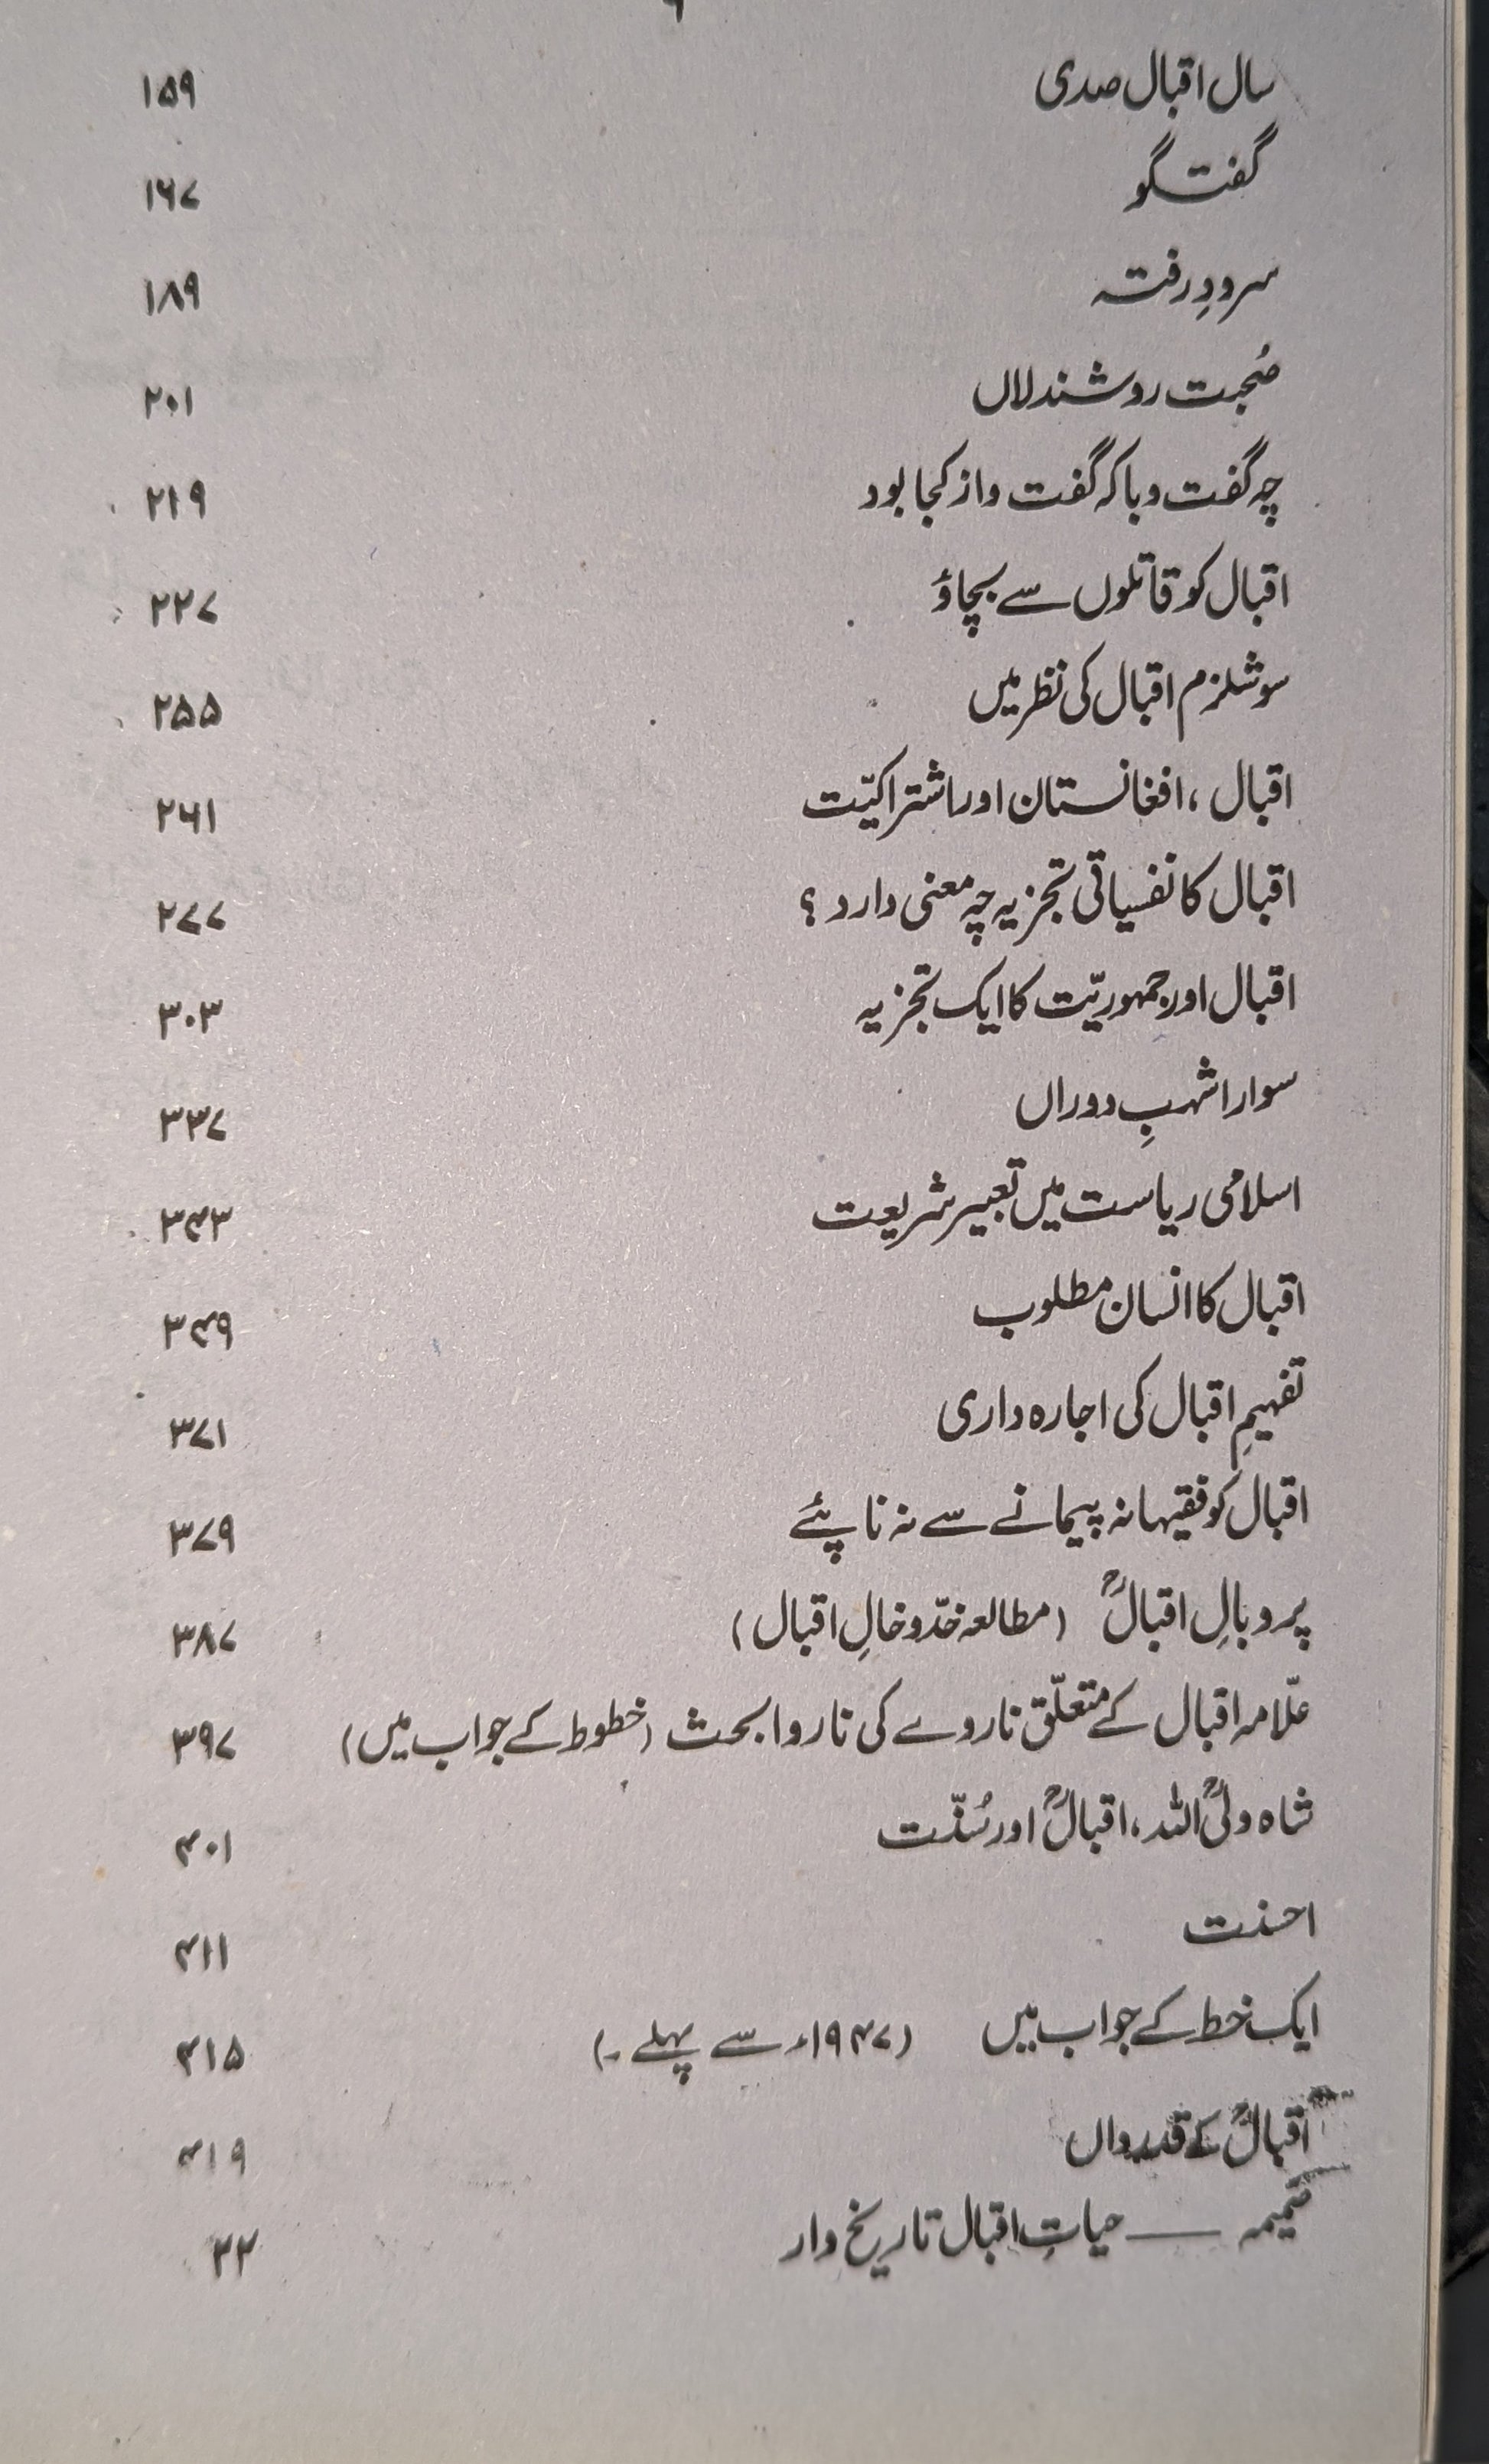 سال اقبال صدی ۱۵۹
گفتگو ۱۶۷
سرودِ رفتہ ۱۸۹
صُحبت روشندلاں ۲۰۱
چہ گفت و با کہ گفت و از کجا بود ۲۱۹
اقبال کو قاتلوں سے بچاؤ ۲۲۷
سوشلزم اقبال کی نظر میں ۲۵۵
اقبال، افغانستان اور اشتراکیّت ۲۶۱
اقبال کا نفسیاتی تجزیہ چہ معنی دارد؟ ۲۷۷
اقبال اور جمہوریّت کا ایک تجزیہ ۳۰۳
سوار اشہبِ دوراں ۳۳۷
اسلامی ریاست میں تعبیر شریعت ۳۴۳
اقبال کا انسان مطلوب ۳۴۹
تفہیمِ اقبال کی اجارہ داری ۳۷۱
اقبال کو فقیہانہ پیمانے سے نہ ناپئے ۳۷۹
پر و بالِ اقبالؒ (مطالعہ خدّوخالِ اقبال) ۳۸۷
علّامہ اقبال کے متعلّق ناروے کی ناروا بحث (خطوط کے جواب میں) ۳۹۷
شاہ ولیؒ اللہ، اقبالؒ اور سُنّت ۴۰۱
احسنت ۴۱۱
ایک خط کے جواب میں (۱۹۴۷ء سے پہلے۔) ۴۱۵
اقبالؒ کے قدرداں ۴۱۹
ضمیمہ —— حیاتِ اقبال تاریخ وار ۲۲